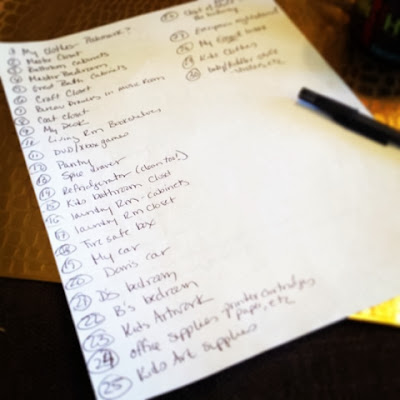 ① My Clothes
② Master Closet
③ Bathroom cabinets
④ Master Bedroom
⑤ Guest Bath Cabinets
⑥ Craft Closet
⑦ Bureau drawers in movie room
⑧ Coat closet
⑨ My Desk
⑩ Living Rm Bookshelves
⑪ DVD/Xbox games
Pantry
Spice drawer
⑭ Refridgerator (clean too!)
⑮ Kids bathroom closet
⑯ laundry Rm - cabinets
⑰ laundry Rm closet
⑱ Fire safe box
⑲ My car
⑳ Dom's car
㉑ D's bedroom
㉒ B's bedroom
㉓ Kids Artwork
㉔ office supplies - printer cartridges
paper, etc
㉕ Kids Art Supplies
Kids Clothes